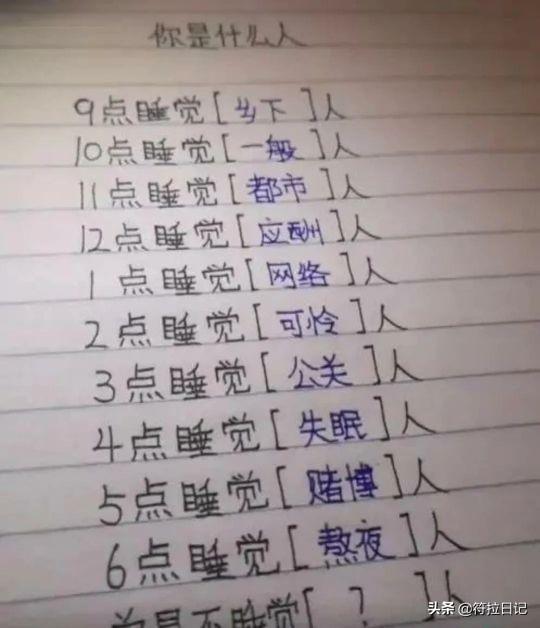 你是什么人
9点睡觉[乡下]人
10点睡觉[一般]人
11点睡觉[都市]人
12点睡觉[应酬]人
1点睡觉[网络]人
2点睡觉[可怜]人
3点睡觉[公关]人
4点睡觉[失眠]人
5点睡觉[赌博]人
6点睡觉[熬夜]人
若是不睡觉[?]人
头条 @符拉日记